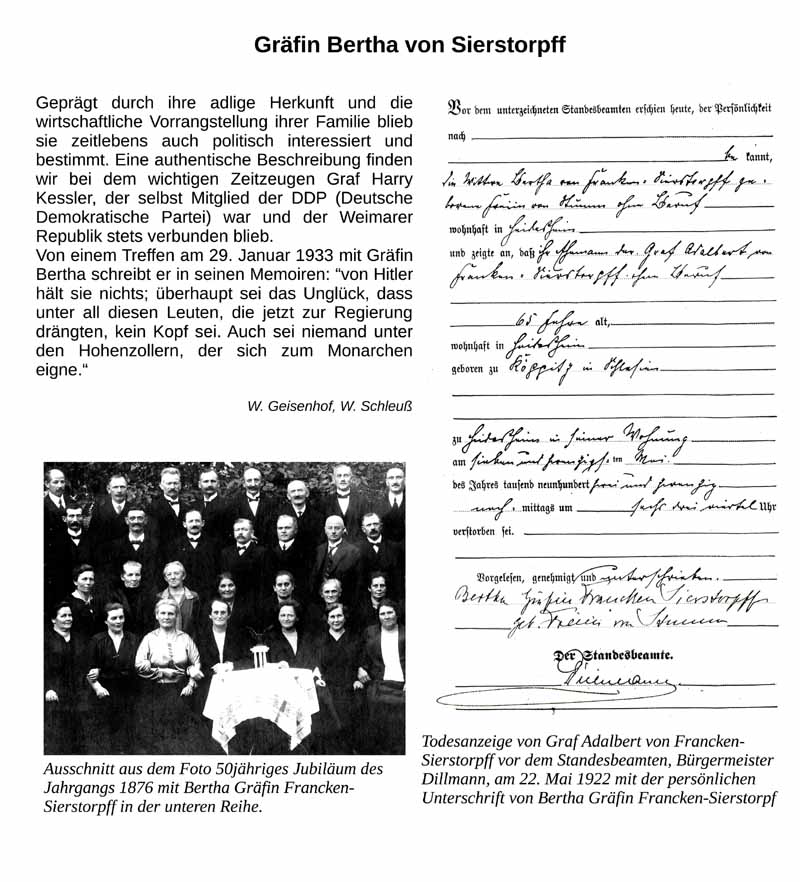 Gräfin Bertha von Sierstorpff
Geprägt durch ihre adlige Herkunft und die
wirtschaftliche Vorrangstellung ihrer Familie blieb
sie zeitlebens auch politisch interessiert und
bestimmt. Eine authentische Beschreibung finden
wir bei dem wichtigen Zeitzeugen Graf Harry
Kessler, der selbst Mitglied der DDP (Deutsche
Demokratische Partei) war und der Weimarer
Republik stets verbunden blieb.
Von einem Treffen am 29. Januar 1933 mit Gräfin
Bertha schreibt er in seinen Memoiren: “von Hitler
hält sie nichts; überhaupt sei das Unglück, dass
unter all diesen Leuten, die jetzt zur Regierung
drängten, kein Kopf sei. Auch sei niemand unter
den Hohenzollern, der sich zum Monarchen
eigne.“
W. Geisenhof, W. Schleuß
Ausschnitt aus dem Foto 50jähriges Jubiläum des
Jahrgangs 1876 mit Bertha Gräfin Francken-
Sierstorpff in der unteren Reihe.
Vor dem unterzeichneten Standesbeamten erschien heute, der Persönlichkeit
nach
be kannt,
die Witwe Bertha von Francken-Sierstorpff ge-
borene Freiin von Stumm ohne Beruf
wohnhaft in Heidesheim
und zeigte an, daß ihr Ehemann der Graf Adalbert von
Francken-Sierstorpff ohne Beruf
65 Jahre alt,
wohnhaft in Heidesheim
geboren zu Köppitz in Schlesien
zu Heidesheim in seiner Wohnung
am ten Mai
des Jahres tausend neunhundert zwei und zwanzig
nach mittags um sechs drei viertel Uhr
verstorben sei.
Vorgelesen, genehmigt und unterschrieben.
Bertha Gräfin Francken Sierstorpff
geb. Freiin von Stumm
Der Standesbeamte.
Dillmann
Todesanzeige von Graf Adalbert von Francken-
Sierstorpff vor dem Standesbeamten, Bürgermeister
Dillmann, am 22. Mai 1922 mit der persönlichen
Unterschrift von Bertha Gräfin Francken-Sierstorpf